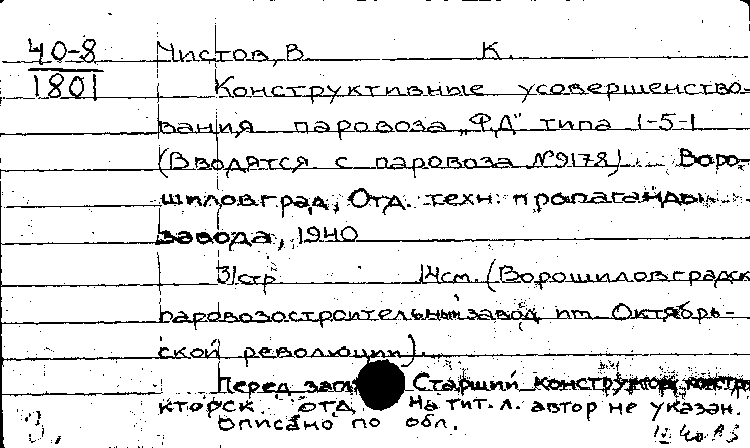 40-8
1801
Чистов, В. К.
Конструктивные усовершенство-
вания паровоза „ФД" типа 1-5-1
(Вводятся с паровоза №9178) Воро-
шиловград, Отд. техн. пропаганды
завода, 1940
31стр 14см. (Ворошиловградск
паровозостроительный завод им. Октябрь-
ской революции).
Перед загл Старший конструктор констру
кторск. отд На тит. л. автор не указан.
Описано по обл.